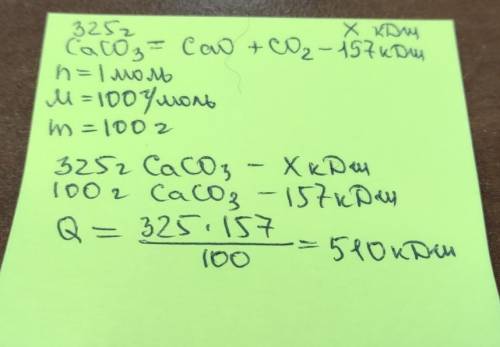 325г X кДж
CaCO₃ = CaO + CO₂ - 157кДж
n = 1 моль
M = 100г/моль
m = 100 г
325г CaCO₃ - X кДж
100 г CaCO₃ - 157кДж
Q = 325 · 157 / 100 = 510 кДж